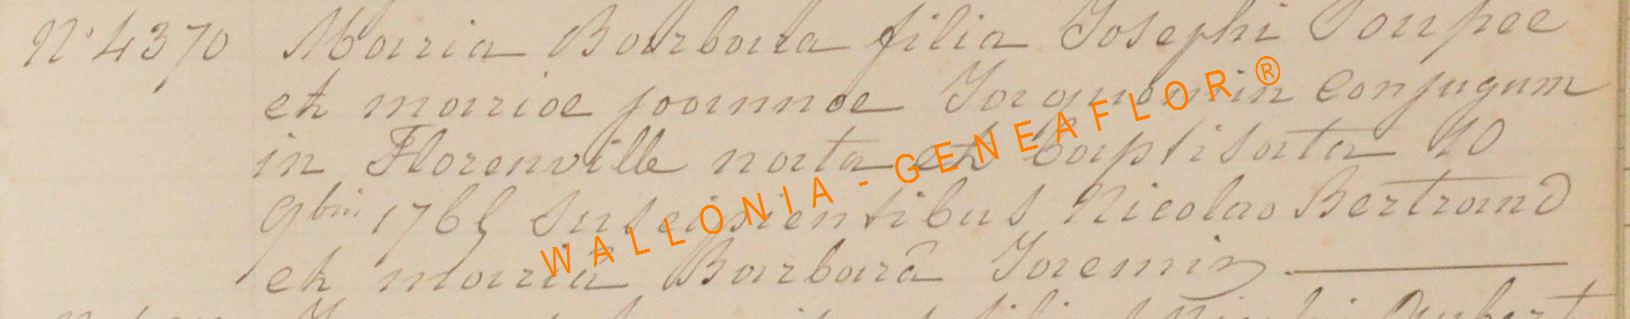 N° 4370 Maria Barbara filia Josephi Poupee
et mariae joannae Jaquemin conjugum
in Florenville nata et baptisata 10
9bris 1765 Suscipientibus Nicolao Bertrand
et mariâ Barbarâ Jaemin
WALLONIA - GENEAFLOR ®